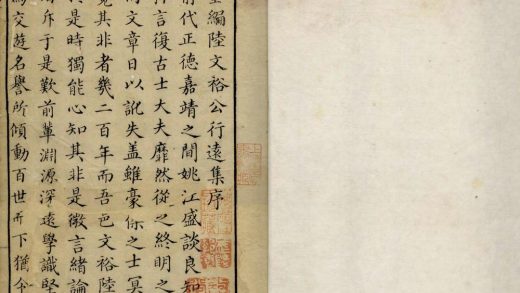 編陸文裕公行遠集序
代正德嘉靖之間姚江盛談良知
言復古士大夫靡然從之終明之
文章日以訛失盖雖豪傑之士冥
其非者幾二百年而吾邑文裕陸
是時獨能心知其非是微言緒論
斥于是歎前輩淵源深遠學識堅
交遊名譽所傾動百世而下猶令